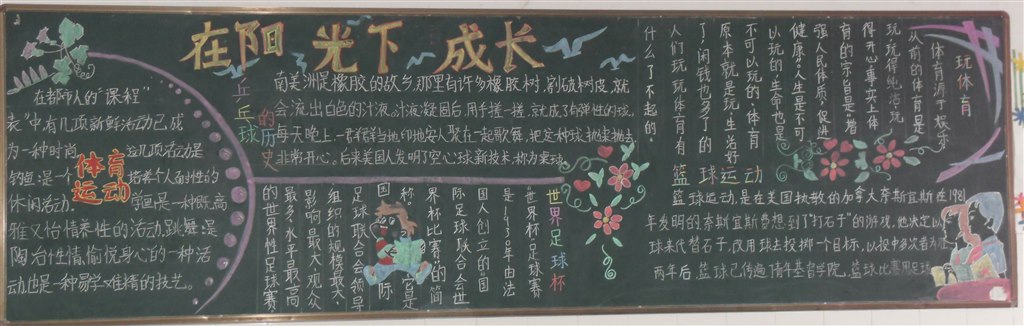 在阳光下成长
在都市人的“课程
表”中有几项新鲜活动已成
为一种时尚。这几项活动是
钓鱼:是一个培养个人耐性的
休闲活动。学画:是一种既高
雅又怡情养性的活动,跳舞:是
陶冶性情,愉悦身心的一种活
动,也是一种易学难精的技艺。
体育
运动
乒乓球的历史
南美洲是橡胶的故乡,那里有许多橡胶树,割破树皮,就
会流出白色的汁液,汁液凝固后,用手搓一搓,就成了有弹性的球,
每天晚上,一群群当地印地安人聚在一起歌舞,把这种球抛来抛去
非常开心。后来美国人发明了空心球新技术,称为
世界足球杯
“世界杯足球赛”
是1930年由法
国人创立的“国
际足球联合会世
界杯比赛”的简
称,它是国际
足球联合会领导
组织的规模最大,
影响最大,观众
最多,水平最高
的世界性足球赛
玩体育
体育源于娱乐
从前的体育是
玩,玩得纯洁,玩
得开心,事实上,体
育的宗旨是“增
强人民体质,促进
健康”,人生是不可
以玩的,生命也是
不可以玩的,体育
原本就是玩,生活好
了,闲钱也多了的
人们玩玩体育有
什么了不起的
篮球运动
篮球运动,是在美国执教的加拿大奈斯宜斯在1981
年发明的奈斯宜斯费想到了“打石子”的游戏,他决定以
球来代替石子,改用球去投掷一个目标,以投中多次者为胜
两年后,篮球已传遍青年基督学院,篮球比赛用足球